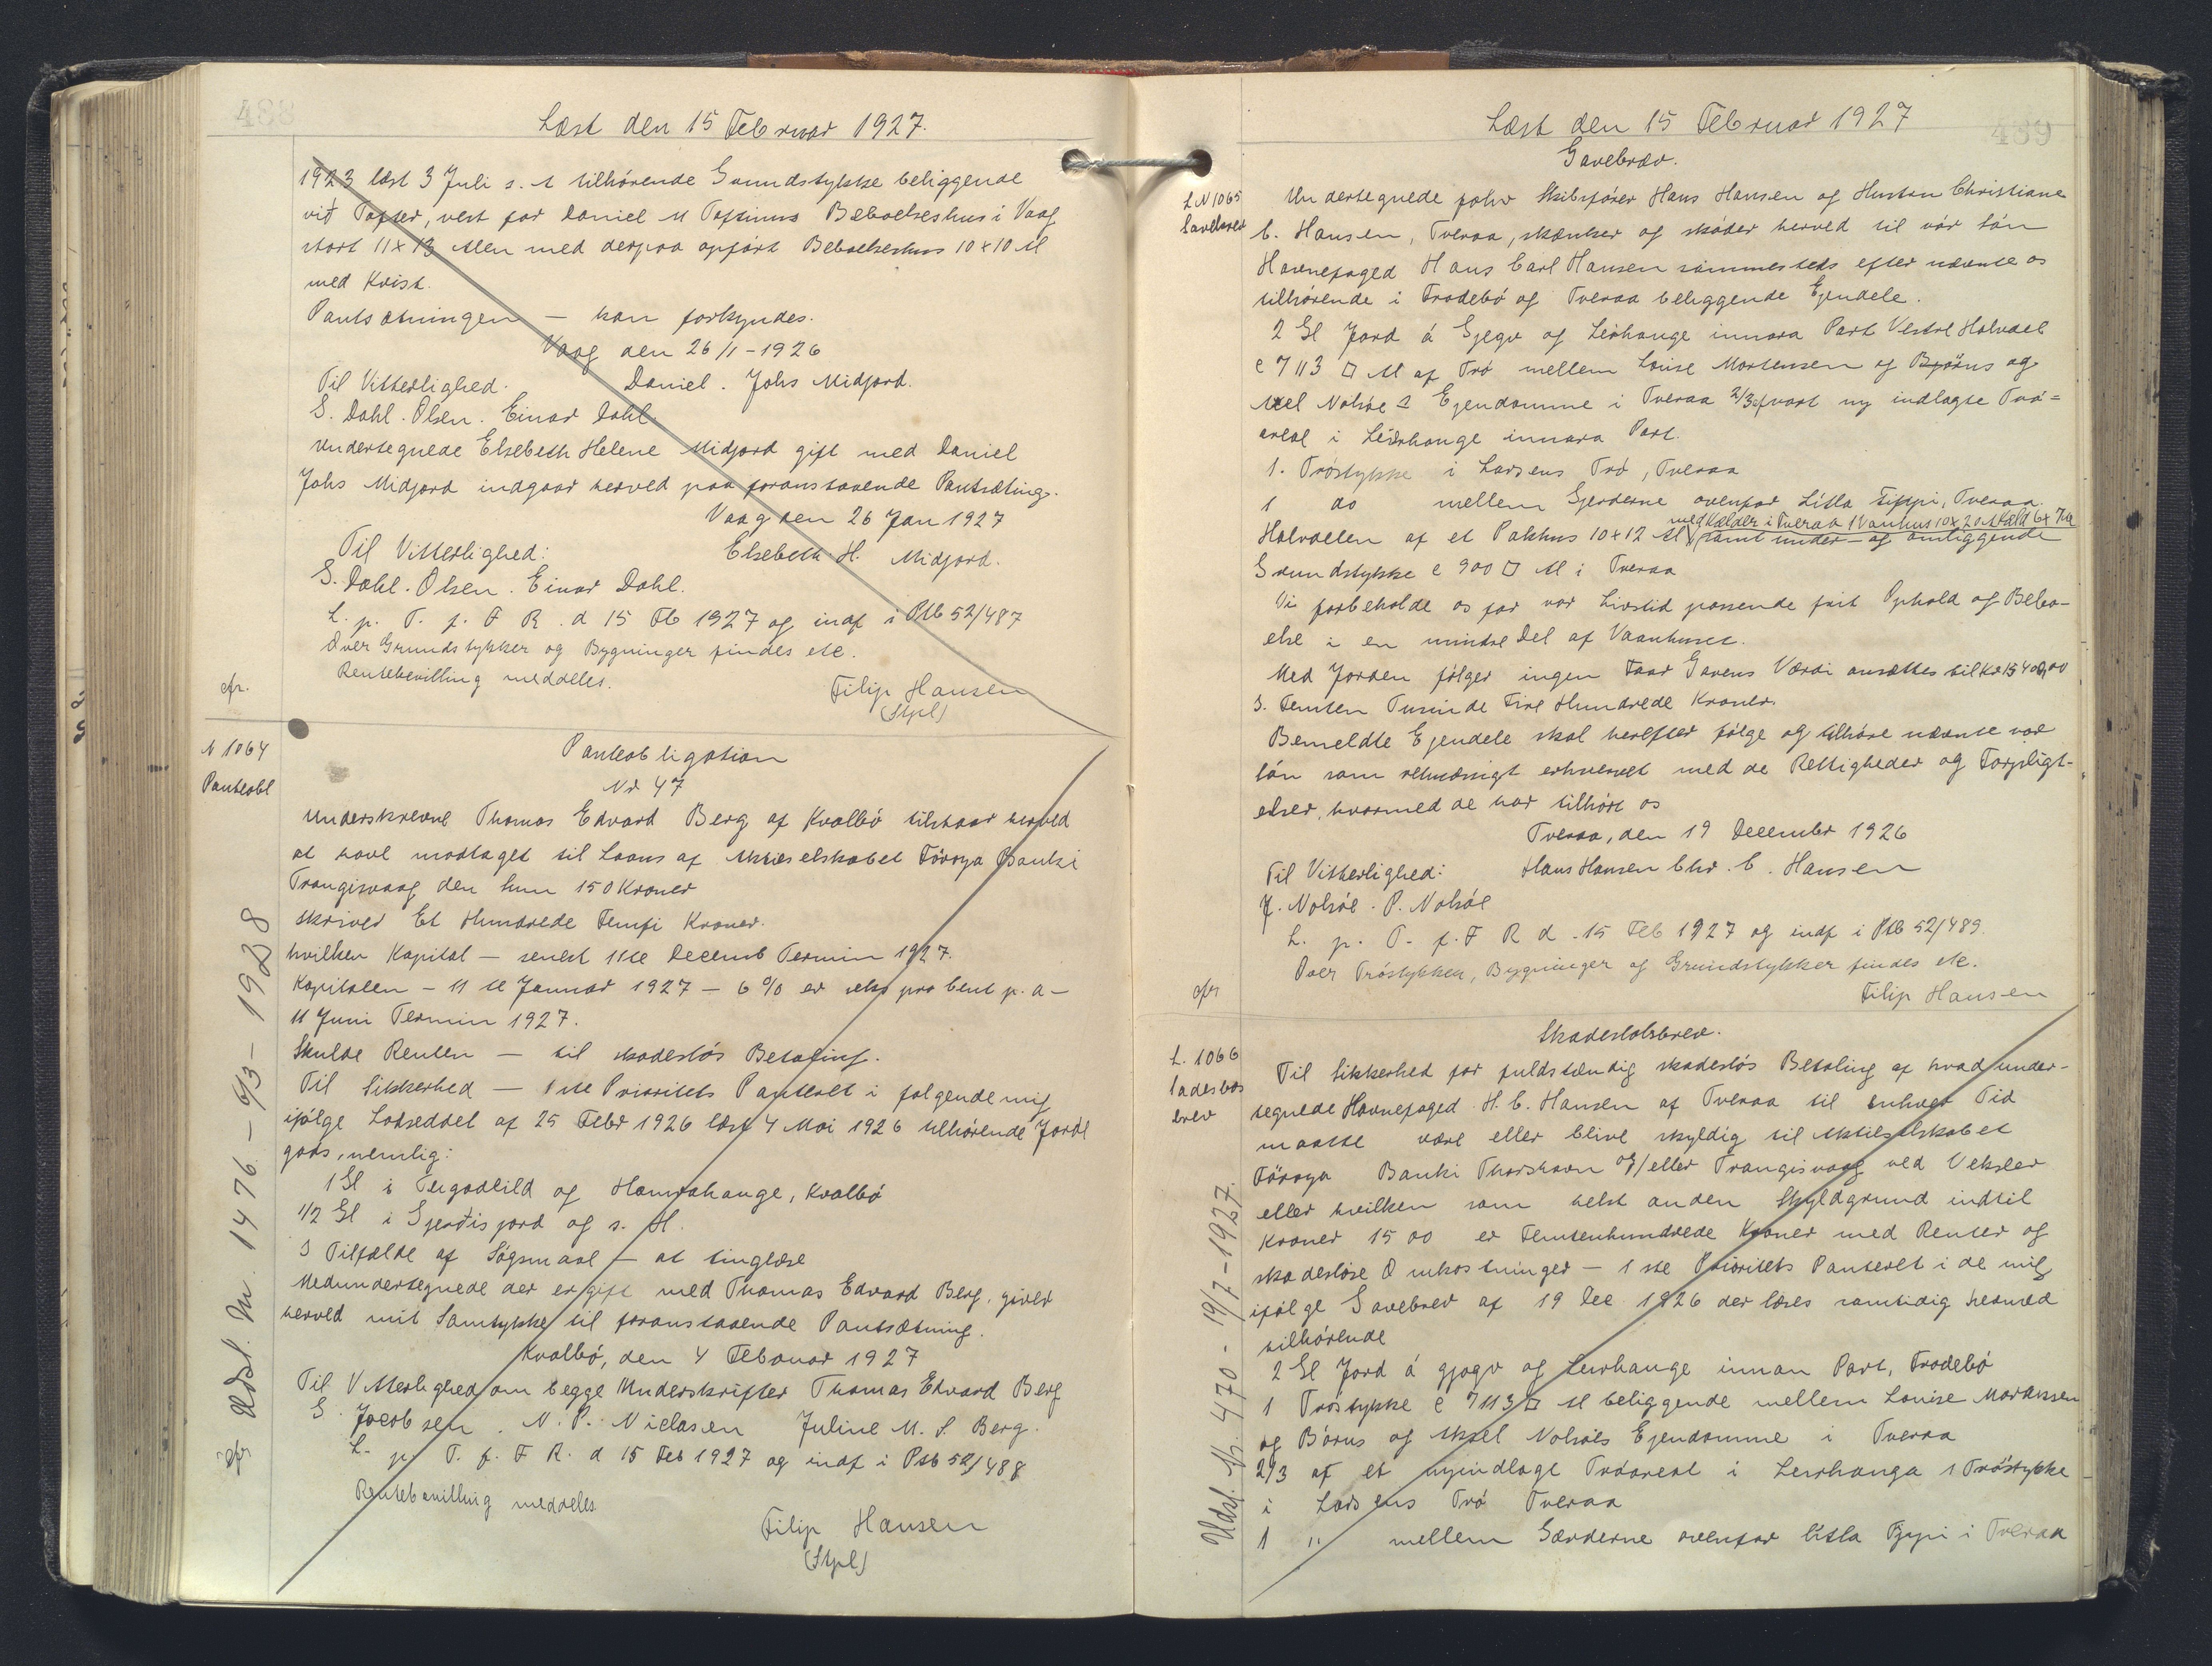 488
Læst den 15 Februar 1927.
1923 læst 3 Juli s. A tilhørende Grundstykke beliggende
við Tofter, vest for Daniel M Toftinus Beboelseshus i Vaag
stort 11 x 13 Alen med derpaa opført Beboelseshus 10 x 10 Al
med Kvist.
Pantsætningen – kan forkyndes.
Vaag den 26/1 - 1926
Til Vitterlighed. Daniel. Johs Midjord.
S. Dahl-Olsen. Einar Dahl
Undertegnede Elsebeth Helene Midjord gift med Daniel
Johs Midjord indgaar herved paa foranstaaende Pantsætning.
Vaag den 26 Jan 1927
Til Vitterlighed: Elsebeth H. Midjord.
S. Dahl-Olsen. Einar Dahl.
L. p. T. f. F R. d 15 Fb 1927 og indf i Ptb 52/487
Over Grundstykker og Bygninger findes etc.
Rentebevilling meddeles.
cfr. Filip Hansen
(Stpl)
N 1064
Panteobl
Panteobligation
Nr 47
Underskrevne Thomas Edvard Berg af Kvalbø tilstaar herved
at have modtaget til Laans af Aktieselskabet Föroya Banki
Trangisvaag den Sum 150 Kroner
skriver Et Hundrede Femti Kroner.
hvilken Kapital – senest 11te Decemb Termin 1927.
Kapitalen – 11 te Januar 1927 – 6 % er seks pro Cent p. a –
11 Juni Termin 1927.
Skulde Renten – til skadesløs Betaling.
Til Sikkerhed – 1ste Prioritets Panteret i følgende mig
ifølge Lodseddel af 25 Febr 1926 læst 4 Mai 1926 tilhørende Jorde
gods, nemlig:
1 Gl i Tergadeild og Hamrahauge, Kvalbø
1/2 Gl i Gjerdisjord og s. H.
I Tilfælde af Søgsmaal – at tinglæse
Medundertegnede der er gift med Thomas Edvard Berg, giver
herved mit Samtykke til foranstaaende Pantsætning.
Kvalbø, den 4 Februar 1927
Til Vitterlighed om begge Underskrifter Thomas Edvard Berg
S. Jacobsen. N. P. Niclasen Juline M. S. Berg.
L. p. T. f. F R. d 15 Feb 1927 og indf i Ptb 52/488
Rentebevilling meddeles
Filip Hansen
(Stpl)
cfr. Udsl. Nr. 1476. – 6/3 – 1928
489
Læst den 15 Februar 1927
Gavebrev.
L N 1065
Gavebrev
Undertegnede forhv Skibsfører Hans Hansen og Hustru Christiane
C. Hansen, Tveraa, skænker og skøder herved til vor Søn
Havnefoged Hans Carl Hansen sammesteds efter nævnte os
tilhørende i Frodebø og Tveraa beliggende Ejendele.
2 Gl Jord á Gjegv og Leirhauge innara Part Vestre Halvdel
c 7113 □ Al af Trø mellem Louise Mortensen og Bjørns og
Axel Nolsøe s Ejendomme i Tveraa 2/3 af vort ny indlagte Trø=
areal i Leirhauge innara Part.
1. Trøstykke i Larsens Trø, Tveraa
1 do mellem Gjerderne ovenfor Litla Tippi, Tveraa
med Kælder i Tveraa 1 Vaanhus 10 x 20 Al Kæld 6 x 7 Al
Halvdelen af et Pakhus 10 x 12 Al samt under- og omliggende
Grundstykke c 900 □ Al i Tveraa
Vi forbeholde os for vor Livstid passende frit Ophold og Bebo-
else i en mindre Del af Vaanhuset.
Med Jorden følger ingen Faar Gavens Værdi ansættes til Kr 15400,00
S. Femten Tusinde Fire Hundrede Kroner.
Bemeldte Ejendele skal herefter følge og tilhøre nævnte vor
Søn som retmæssigt erhvervet med de Rettigheder og Forpligt-
elser, hvormed de har tilhørt os
Tveraa, den 19 December 1926
Til Vitterlighed: Hans Hansen Chr. C. Hansen
J. Nolsøe. P. Nolsøe
L. p. T. f. F R d. 15 Feb 1927 og indf i Ptb 52/489.
Over Trøstykker, Bygninger og Grundstykker findes etc.
cfr Filip Hansen
L. 1066
Skadesløsbrev.
Til Sikkerhed for fuldstændig skadesløs Betaling af hvad under-
tegnede Havnefoged H. C. Hansen af Tveraa til enhver Tid
maatte være eller blive skyldig til Aktieselskabet
Föroya Banki Thorshavn og/eller Trangisvaag ved Veksler
eller hvilken som helst anden Skyldgrund indtil
Kroner 1500 er Femtenhundrede Kroner med Renter og
skadesløse Omkostninger – 1 ste Prioritets Panteret i de mig
ifølge Gavebrev af 19 Dec 1926 der læses samtidig hermed
tilhørende
2 Gl Jord á gjogv og Leirhauge innan Part, Frodebø
1 Trøstykke c 7113 □ Al beliggende mellem Louise Mortensen
og Börns og Aksel Nolsøes Ejendomme i Tveraa
2/3 af et nyindlagt Trøareal i Leirhauga 1 Trøstykke
i Larsens Trø Tveraa
1 " mellem Gærderne ovenfor litla Typpi i Tveraa
Udsl. Nr. 470 - 19/7 - 1927.